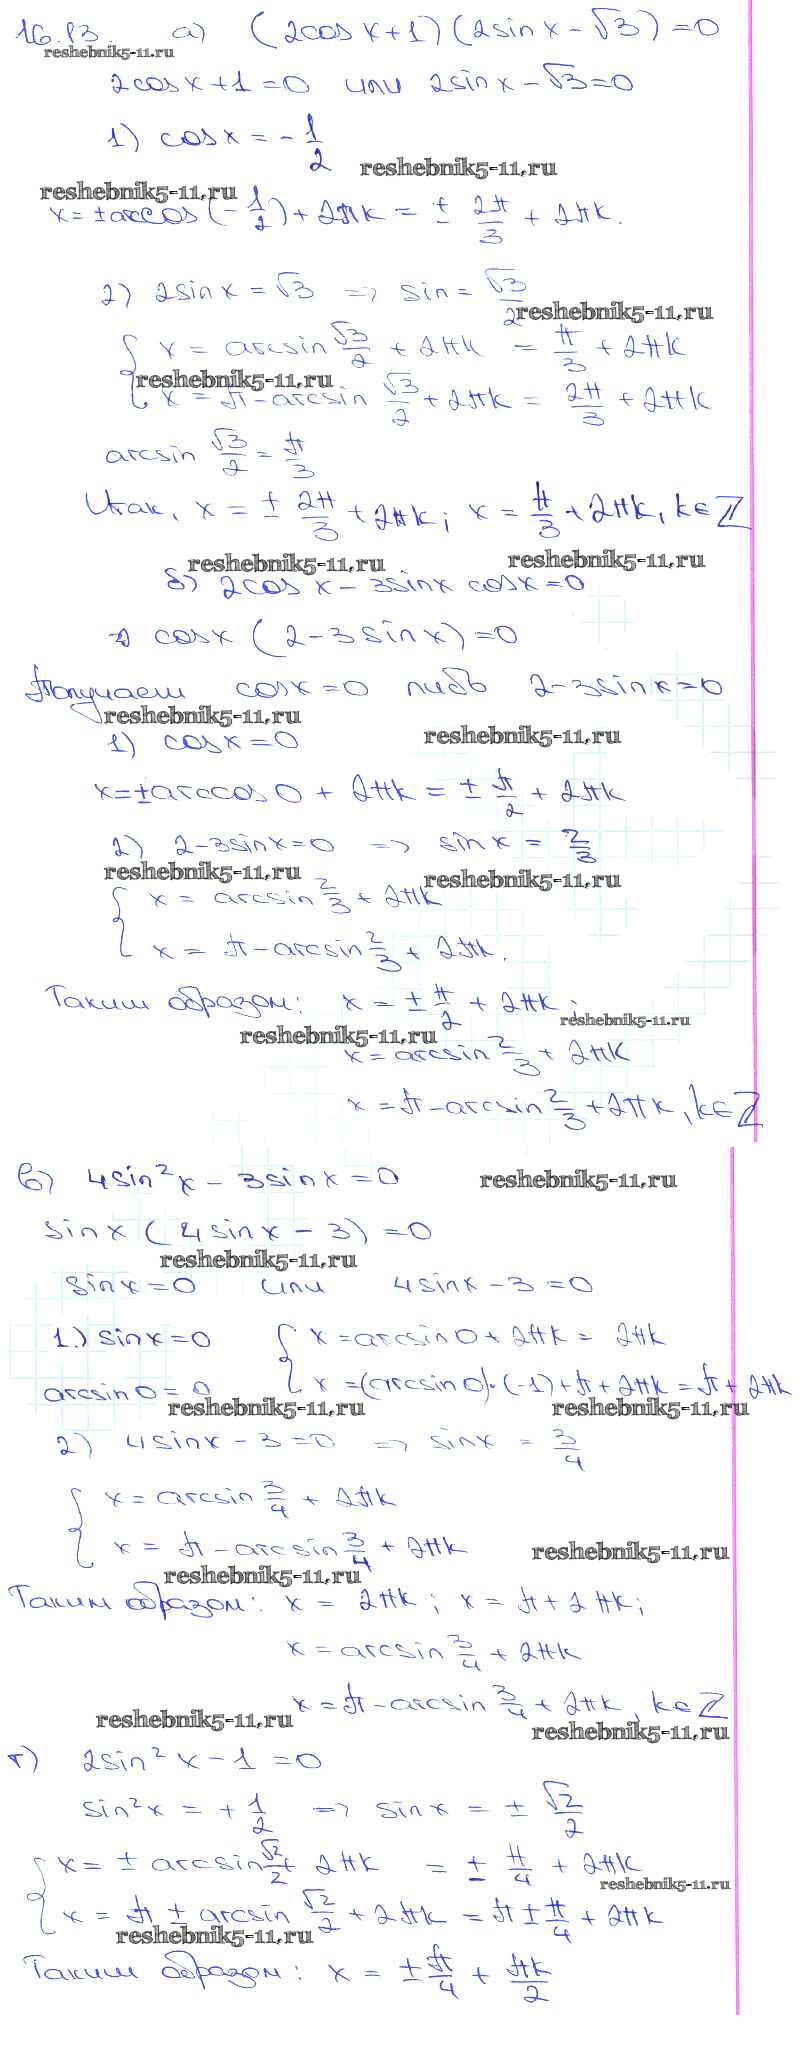 16.13. а) (2cos x+1)(2sin x - √3)=0
reshebnik5-11.ru
2cos x+1=0 или 2sin x - √3=0
1) cos x = - 1/2
reshebnik5-11.ru
reshebnik5-11.ru
x = ± arccos(-1/2) + 2πk = ± 2π/3 + 2πk.
2) 2sin x = √3 => sin = √3/2
reshebnik5-11.ru
{ x = arcsin √3/2 + 2πk = π/3 + 2πk
reshebnik5-11.ru
x = π - arcsin √3/2 + 2πk = 2π/3 + 2πk
arcsin √3/2 = π/3
Итак, x = ± 2π/3 + 2πk; x = π/3 + 2πk, k∈Z
reshebnik5-11.ru reshebnik5-11.ru
б) 2cos x - 3sin x cos x = 0
cos x (2-3sin x) = 0
Получаем cos x = 0 либо 2-3sin x = 0
reshebnik5-11.ru
reshebnik5-11.ru
1) cos x = 0
x = ± arccos 0 + 2πk = ± π/2 + 2πk
2) 2-3sin x = 0 => sin x = 2/3
reshebnik5-11.ru
reshebnik5-11.ru
{ x = arcsin 2/3 + 2πk
x = π - arcsin 2/3 + 2πk.
Таким образом: x = ± π/2 + 2πk;
reshebnik5-11.ru
reshebnik5-11.ru
x = arcsin 2/3 + 2πk
x = π - arcsin 2/3 + 2πk, k∈Z
в) 4sin²x - 3sin x = 0
reshebnik5-11.ru
sin x (4sin x - 3) = 0
reshebnik5-11.ru
sin x = 0 или 4sin x - 3 = 0
1.) sin x = 0 { x = arcsin 0 + 2πk = 2πk
arcsin 0 = 0 x = (arcsin 0)·(-1) + π + 2πk = π + 2πk
reshebnik5-11.ru reshebnik5-11.ru
2) 4sin x - 3 = 0 => sin x = 3/4
{ x = arcsin 3/4 + 2πk
x = π - arcsin 3/4 + 2πk
reshebnik5-11.ru
reshebnik5-11.ru
Таким образом: x = 2πk; x = π + 2πk;
x = arcsin 3/4 + 2πk
x = π - arcsin 3/4 + 2πk, k∈Z
reshebnik5-11.ru
reshebnik5-11.ru
г) 2sin²x - 1 = 0
sin²x = + 1/2 => sin x = ± √2/2
{ x = ± arcsin √2/2 + 2πk = ± π/4 + 2πk
reshebnik5-11.ru
x = π ± arcsin √2/2 + 2πk = π ± π/4 + 2πk
reshebnik5-11.ru
Таким образом: x = ± π/4 + πk/2